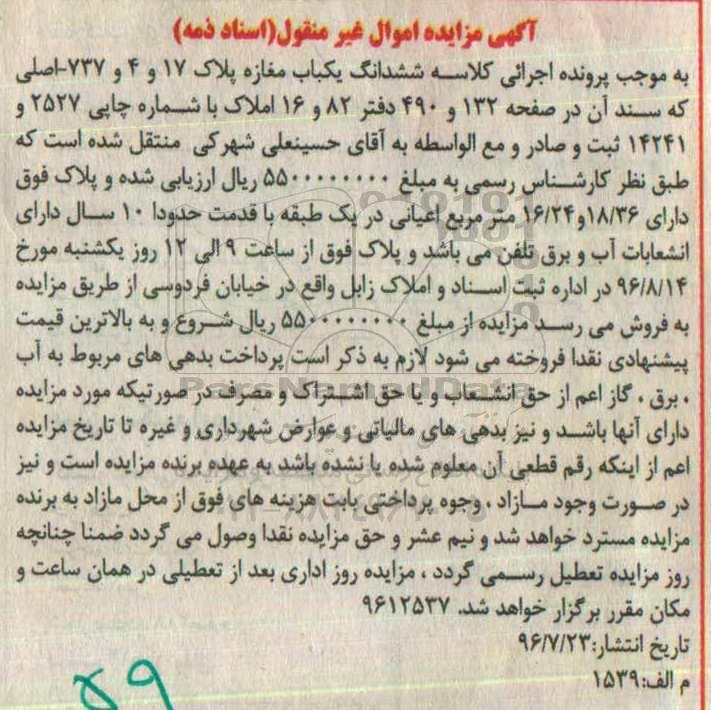 آگهی مزایده اموال غیر منقول(اسناد ذمه)
به موجب پرونده اجرائی کلاسه ششدانگ یکباب مغازه پلاک ۱۷ و ۴ و ۷۳۷-اصلی
که سند آن در صفحه ۱۳۲ و ۴۹۰ دفتر ۸۲ و ۱۶ املاک با شماره چاپی ۲۵۲۷ و
۱۴۲۴۱ ثبت و صادر و مع الواسطه به آقای حسینعلی شهرکی منتقل شده است که
طبق نظر کارشناس رسمی به مبلغ ۵۵۰۰۰۰۰۰۰۰ ریال ارزیابی شده و پلاک فوق
دارای ۱۸/۳۶و۱۶/۲۴ متر مربع اعیانی در یک طبقه با قدمت حدودا ۱۰ سال دارای
انشعابات آب و برق تلفن می باشد و پلاک فوق از ساعت ۹ الی ۱۲ روز یکشنبه مورخ
۹۶/۸/۱۴ در اداره ثبت اسناد و املاک زابل واقع در خیابان فردوسی از طریق مزایده
به فروش می رسد مزایده از مبلغ ۵۵۰۰۰۰۰۰۰۰ ریال شروع و به بالاترین قیمت
پیشنهادی نقدا فروخته می شود لازم به ذکر است پرداخت بدهی های مربوط به آب
، برق ، گاز اعم از حق انشعاب و یا حق اشتراک و مصرف در صورتیکه مورد مزایده
دارای آنها باشد و نیز بدهی های مالیاتی و عوارض شهرداری و غیره تا تاریخ مزایده
اعم از اینکه رقم قطعی آن معلوم شده یا نشده باشد به عهده برنده مزایده است و نیز
در صورت وجود مازاد ، وجوه پرداختی بابت هزینه های فوق از محل مازاد به برنده
مزایده مسترد خواهد شد و نیم عشر و حق مزایده نقدا وصول می گردد ضمنا چنانچه
روز مزایده تعطیل رسمی گردد ، مزایده روز اداری بعد از تعطیلی در همان ساعت و
مکان مقرر برگزار خواهد شد. ۹۶۱۲۵۳۷
تاریخ انتشار:۹۶/۷/۲۳
م الف:۱۵۳۹
ParsNamadData